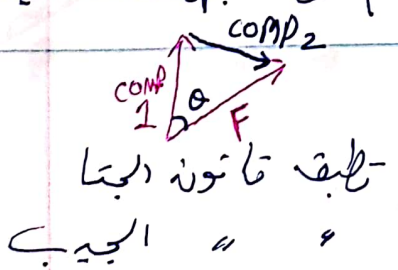 COMP 2
COMP
1
θ
F
نطبق قانون الجتا
" " الجيب